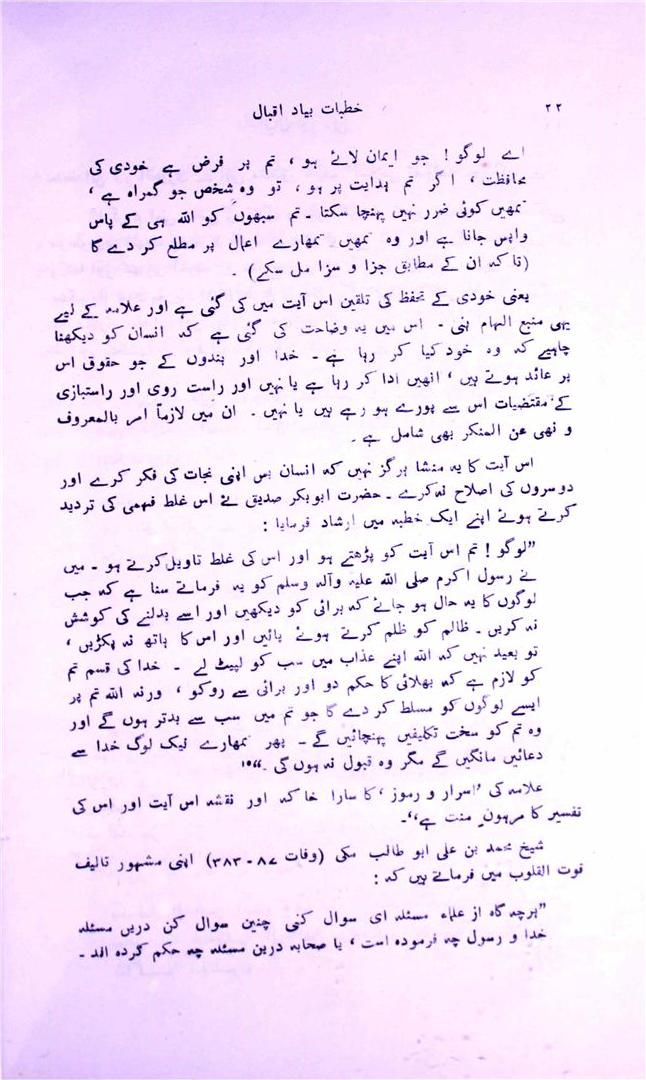 ۲۲
خطبات بیاد اقبال
اے لوگو! جو ایمان لائے ہو، تم پر فرض ہے خودی کی
محافظت، اگر تم ہدایت پر ہو، تو وہ شخص جو گمراہ ہے،
تمھیں کوئی ضرر نہیں پہنچا سکتا۔ تم سبھوں کو اللہ ہی کے پاس
واپس جانا ہے اور وہ تمھیں تمھارے اعمال پر مطلع کر دے گا
(تاکہ ان کے مطابق جزا و سزا مل سکے)۔
یعنی خودی کے تحفظ کی تلقین اس آیت میں کی گئی ہے اور علامہ کے لیے
یہی منبع الہام بنی۔ اس میں یہ وضاحت کی گئی ہے کہ انسان کو دیکھنا
چاہیے کہ وہ خود کیا کر رہا ہے۔ خدا اور بندوں کے جو حقوق اس
پر عائد ہوتے ہیں، انھیں ادا کر رہا ہے یا نہیں اور راست روی اور راستبازی
کے مقتضیات اس سے پورے ہو رہے ہیں یا نہیں۔ ان میں لازماً امر بالمعروف
و نھی عن المنکر بھی شامل ہے۔
اس آیت کا یہ منشا ہرگز نہیں کہ انسان بس اپنی نجات کی فکر کرے اور
دوسروں کی اصلاح نہ کرے۔ حضرت ابوبکر صدیق نے اس غلط فہمی کی تردید
کرتے ہوئے اپنے ایک خطبہ میں ارشاد فرمایا:
”لوگو! تم اس آیت کو پڑھتے ہو اور اس کی غلط تاویل کرتے ہو۔ میں
نے رسول اکرم صلی اللہ علیہ وآلہ وسلم کو یہ فرماتے سنا ہے کہ جب
لوگوں کا یہ حال ہو جائے کہ برائی کو دیکھیں اور اسے بدلنے کی کوشش
نہ کریں۔ ظالم کو ظلم کرتے ہوئے پائیں اور اس کا ہاتھ نہ پکڑیں،
تو بعید نہیں کہ اللہ اپنے عذاب میں سب کو لپیٹ لے۔ خدا کی قسم تم
کو لازم ہے کہ بھلائی کا حکم دو اور برائی سے روکو، ورنہ اللہ تم پر
ایسے لوگوں کو مسلط کر دے گا جو تم میں سب سے بدتر ہوں گے اور
وہ تم کو سخت تکلیفیں پہنچائیں گے۔ پھر تمھارے نیک لوگ خدا سے
دعائیں مانگیں گے مگر وہ قبول نہ ہوں گی۔“۱۵
علامہ کی ’اسرار و رموز‘ کا سارا خاکہ اور نقشہ اس آیت اور اس کی
تفسیر کا مرہونِ منت ہے“۔
شیخ محمد بن علی ابو طالب مکی (وفات ۸۷-۳۸۳) اپنی مشہور تالیف
قوت القلوب میں فرماتے ہیں کہ:
”ہرچہ گاہ از علماء مسئلہ ای سوال کنی چنین سوال کن دریں مسئلہ
خدا و رسول چہ فرمودہ است، یا صحابہ درین مسئلہ چہ حکم کردہ اند۔